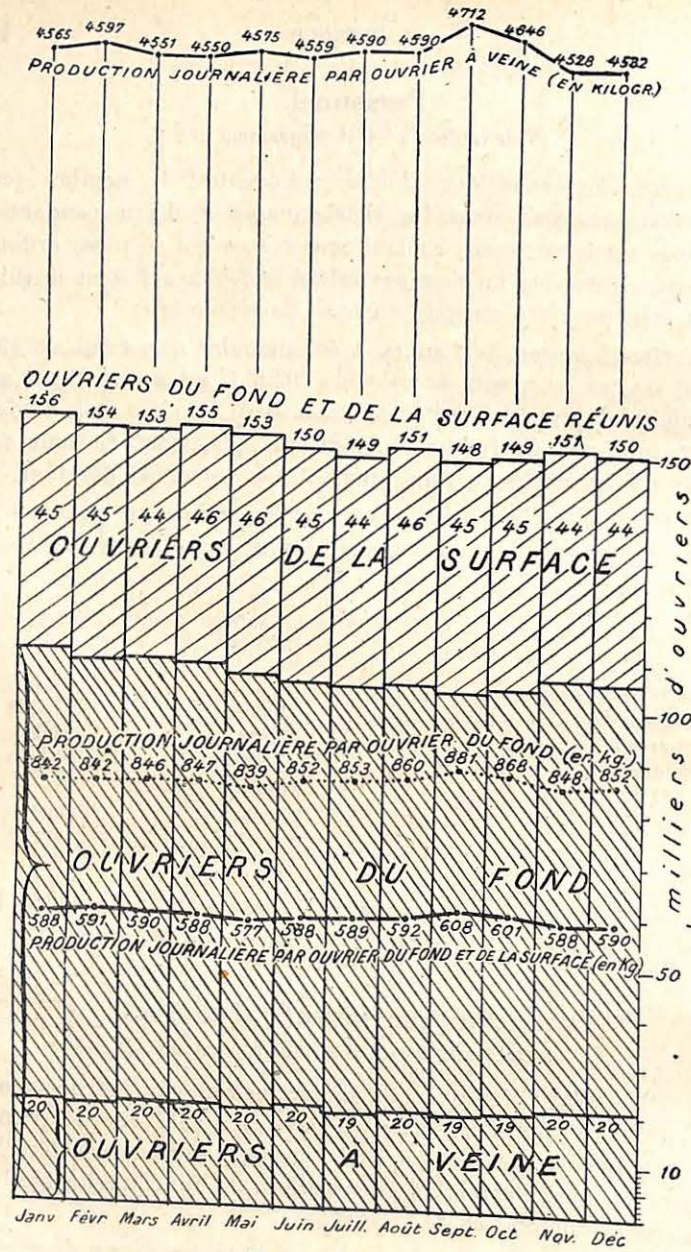 4565 4597 4551 4550 4575 4559 4590 4590 4712 4646 4528 4582
PRODUCTION JOURNALIÈRE PAR OUVRIER À VEINE (EN KILOGR.)
OUVRIERS DU FOND ET DE LA SURFACE RÉUNIS
156 154 153 155 153 150 149 151 148 149 151 150
150
45 45 44 46 46 45 44 46 45 45 44 44
OUVRIERS DE LA SURFACE
milliers d'ouvriers
100
PRODUCTION JOURNALIÈRE PAR OUVRIER DU FOND (en kg.)
842 842 846 847 839 852 853 860 881 868 848 852
OUVRIERS DU FOND
588 591 590 588 577 588 589 592 608 601 588 590
PRODUCTION JOURNALIÈRE PAR OUVRIER DU FOND ET DE LA SURFACE (en Kg)
50
20 20 20 20 20 20 19 20 19 19 20 20
OUVRIERS A VEINE
10
Janv Févr Mars Avril Mai Juin Juill. Août Sept. Oct Nov. Déc